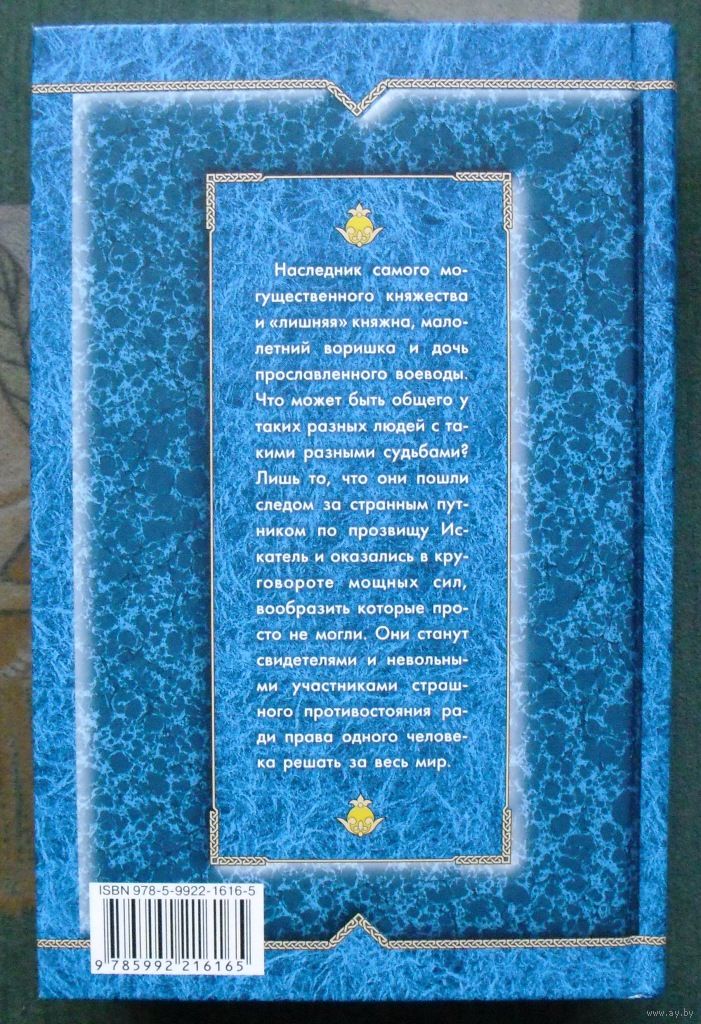 Наследник самого мо-
гущественного княжества
и «лишняя» княжна, мало-
летний воришка и дочь
прославленного воеводы.
Что может быть общего у
таких разных людей с та-
кими разными судьбами?
Лишь то, что они пошли
следом за странным пут-
ником по прозвищу Ис-
катель и оказались в кру-
говороте мощных сил,
вообразить которые про-
сто не могли. Они станут
свидетелями и невольны-
ми участниками страш-
ного противостояния ра-
ди права одного челове-
ка решать за весь мир.
ISBN 978-5-9922-1616-5
9 785992 216165
www.ay.by